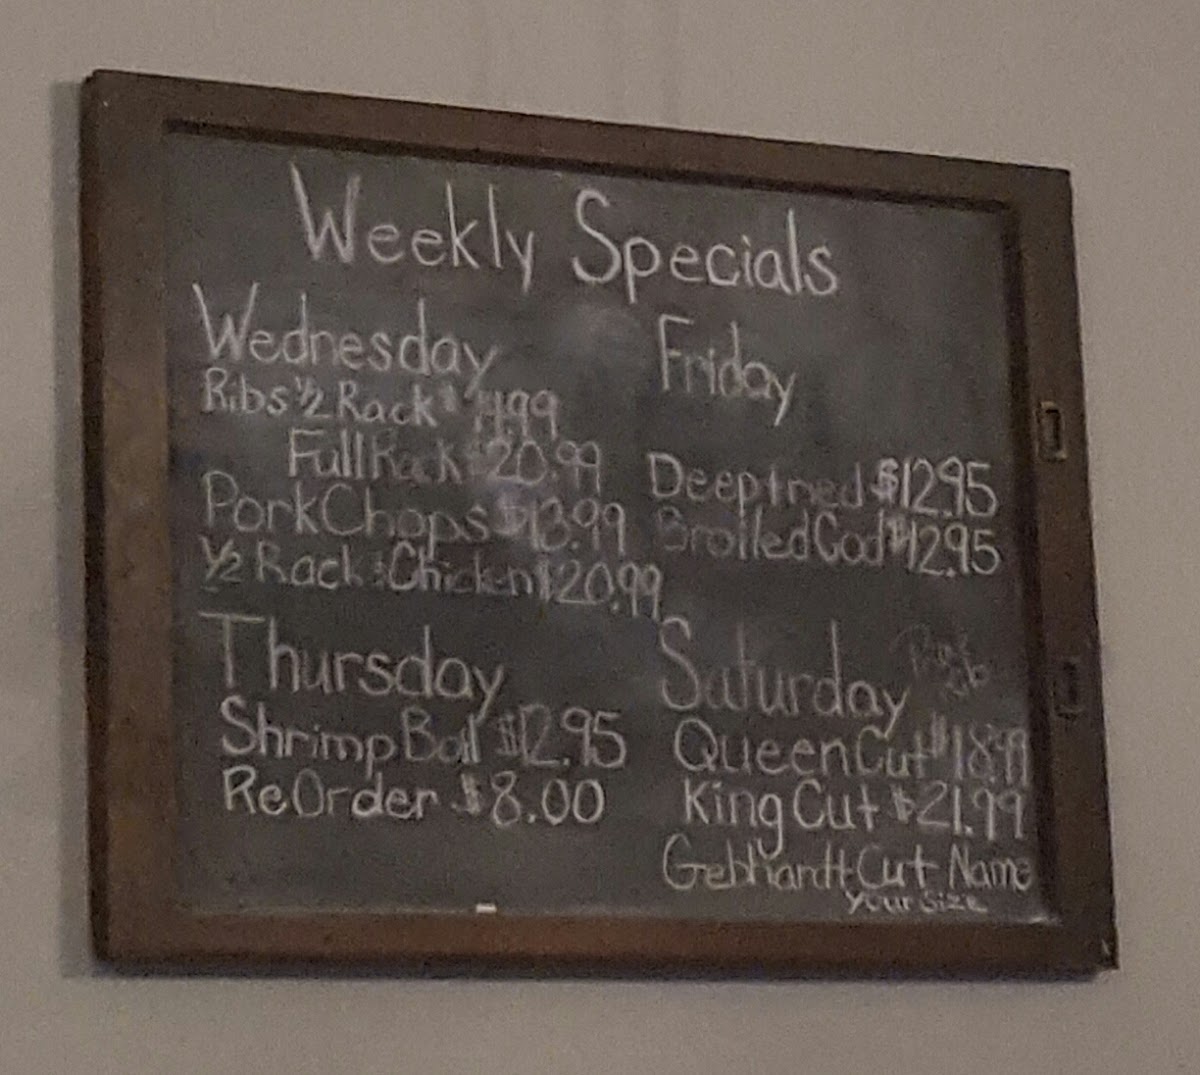 Weekly Specials
Wednesday
Ribs ½ Rack $14.99
Full Rack $20.99
Pork Chops $13.99
½ Rack & Chicken $20.99
Thursday
Shrimp Boil $12.95
ReOrder $8.00
Friday
Deep fried $12.95
Broiled Cod $12.95
Saturday
Queen Cut $18.99
King Cut $21.99
Gebhardt Cut Name
your size